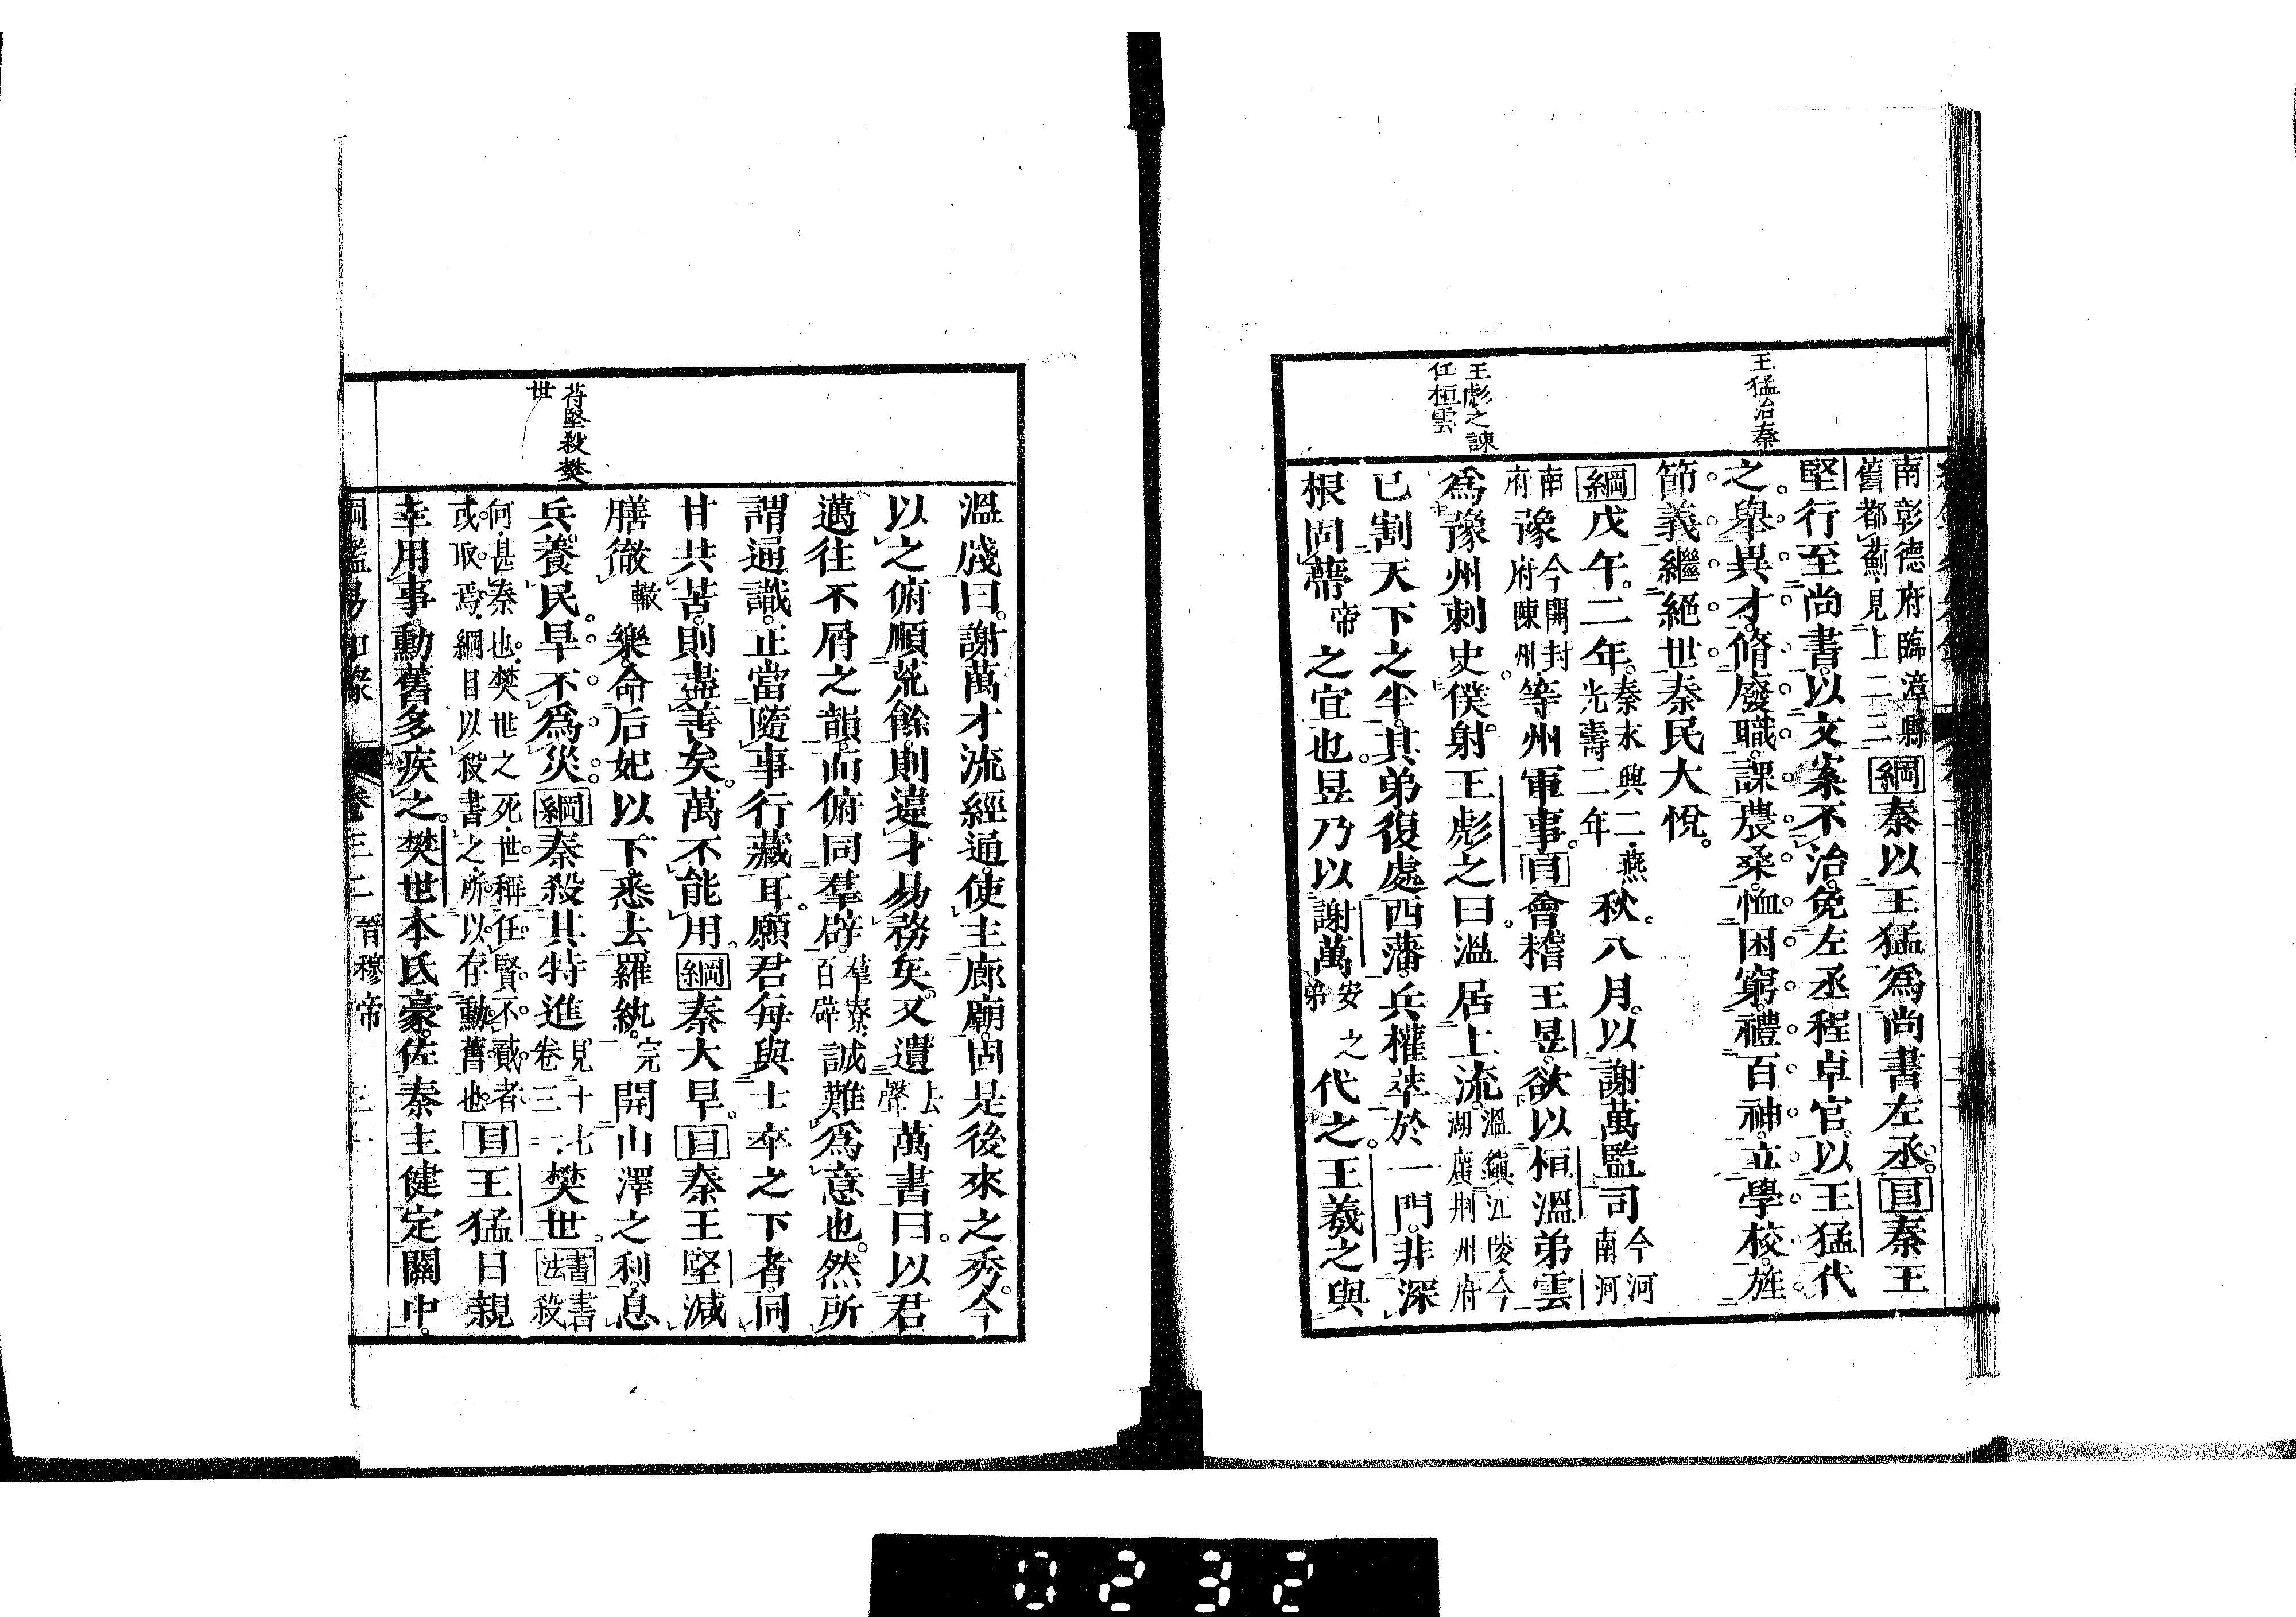 王猛治秦
王彪之諫
任桓雲
南彰德府臨漳縣
舊都薊見上二三
綱秦以王猛爲尚書左丞。目秦王
堅行至尚書。以文案不治。免左丞程卓官。以王猛代
之。舉異才。脩廢職。課農桑。恤困窮。禮百神。立學校。旌
節義。繼絕世。秦民大悅。
綱戊午。二年。秦永興二。燕
光壽二年
秋。八月。以謝萬監司
今河
南河
南
府
豫
今開封
府陳州
等州軍事。目會稽王昱。欲以桓溫弟雲
爲豫州刺史。僕射王彪之曰。溫居上流。
溫鎭江陵今
湖廣荆州府
已割天下之半。其弟復處西藩。兵權萃於一門。非深
根固蔕
帝
之宜也。昱乃以謝萬
安之
弟
代之。王羲之與
苻堅殺樊
世
溫牋曰。謝萬才流經通。使主廊廟。固是後來之秀。今
以之俯順荒餘。則違才易務矣。又遺
去
聲
萬書曰。以君
邁往不屑之韻。而俯同羣辟。
羣寮
百辟
誠難爲意也。然所
謂通識。正當隨事行藏耳。願君每與士卒之下者。同
甘共苦。則盡善矣。萬不能用。綱秦大旱。目秦王堅減
膳徹
轍
樂。命后妃以下。悉去羅紈。
完
開山澤之利。息
兵養民。旱不爲災。綱秦殺其特進
見十七
卷三一
樊世。
書書
法殺
何甚秦也。樊世之死。世稱任賢不貳者
或取焉。綱目以殺書之。所以存勳舊也
目王猛日親
幸用事。勳舊多疾之。樊世本氐豪。佐秦主健定關中。
綱鑑易知錄 卷三二 晉穆帝
0232